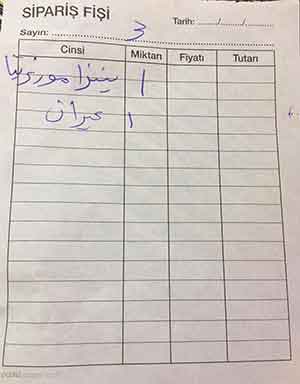 SİPARİŞ FİŞİ
Tarih: ....../....../......
Sayın: 3
Cinsi Miktarı Fiyatı Tutarı
بيتزا ١
عيران ١